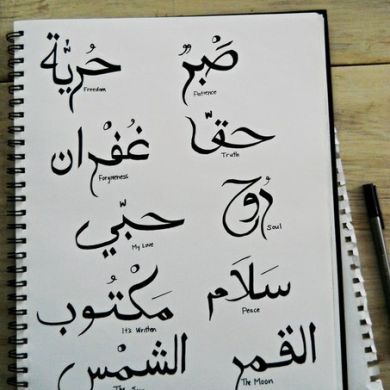 حُرِيَّة صَبْرٌ
Freedom Patience
غُفْران حقّاً
Forgiveness Truth
حبّي رُوح
My Love Soul
مَكْتُوب سَلَام
It's Written Peace
الشمْس القمر
The Sun The Moon